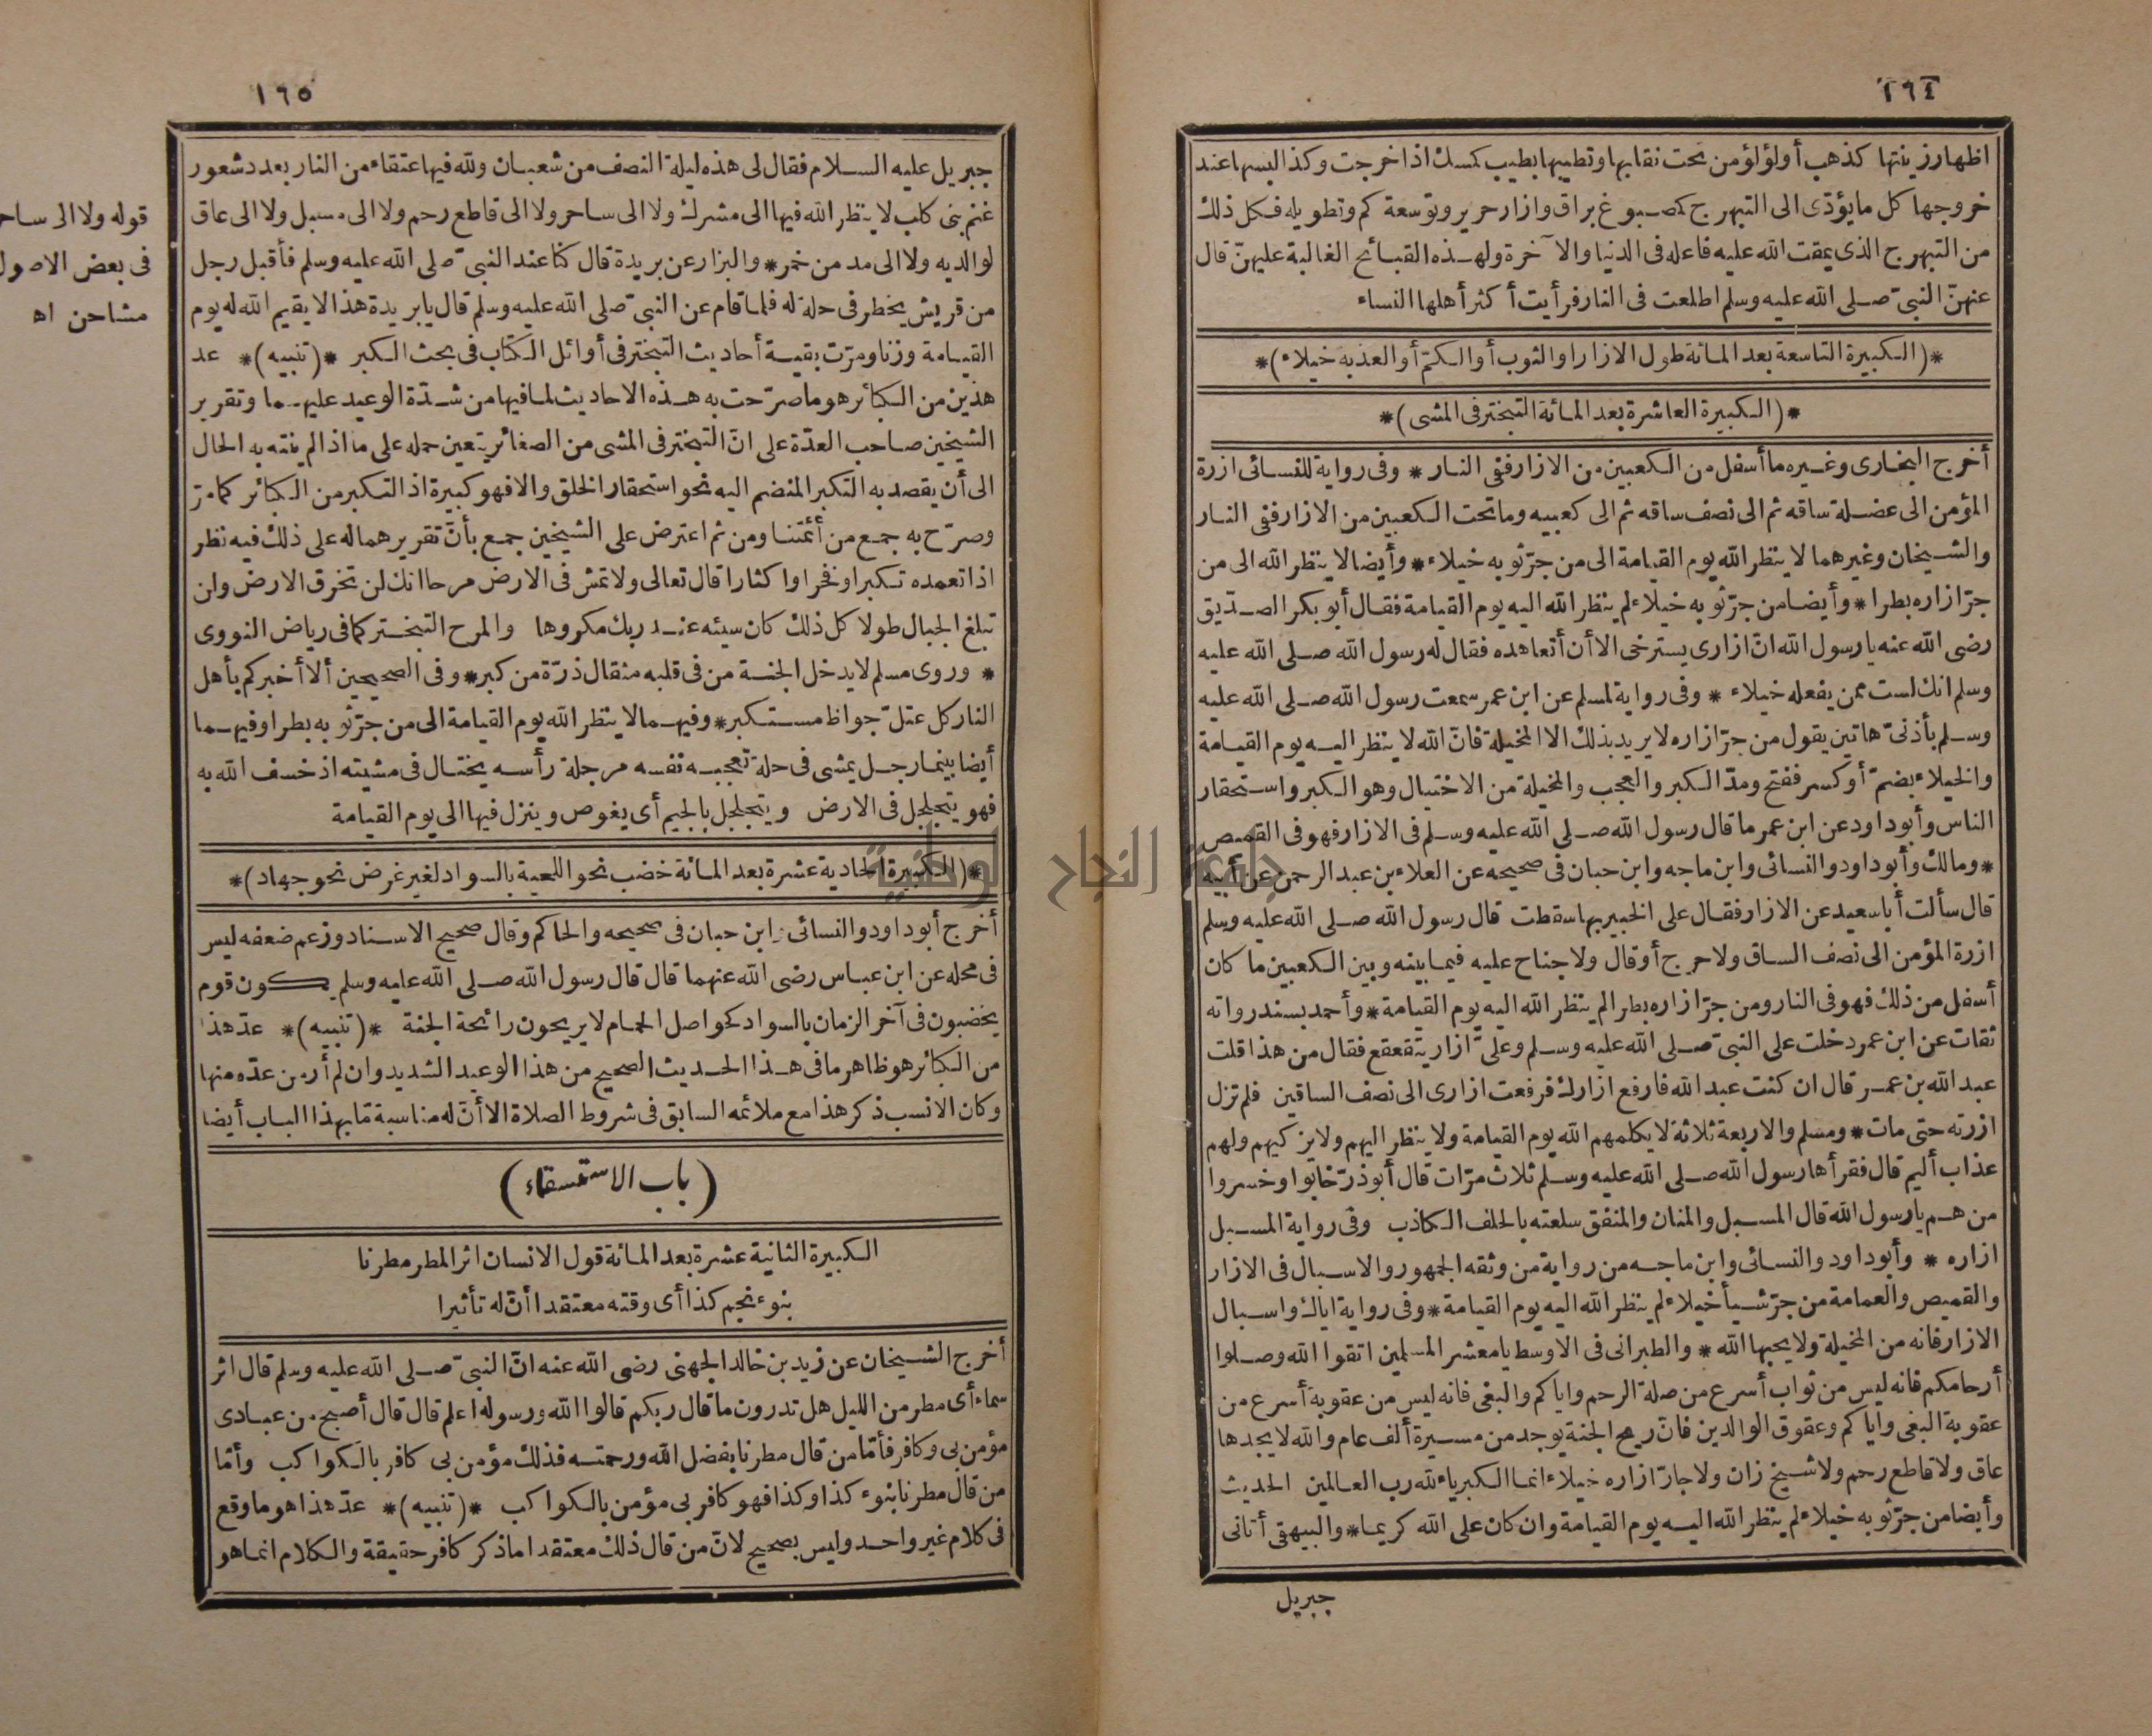 ١٦٤
اظهار زينتها كذهب أو لؤلؤ من تحت نقابها وتطييبها بطيب كمسك اذا خرجت وكذا لبسها عند
خروجها كل ما يؤدّى الى التبهرج كمصبوغ براق وازار حرير وتوسعة كم وتطويله فكل ذلك
من التبهرج الذى يمقت الله عليه فاعله فى الدنيا والآخرة ولهذه القبائح الغالبة عليهنّ قال
عنهنّ النبىّ صلى الله عليه وسلم اطلعت فى النار فرأيت أكثر أهلها النساء
*(الكبيرة التاسعة بعد المائة طول الازار أو الثوب أو الكمّ أو العذبة خيلاء)*
*(الكبيرة العاشرة بعد المائة التبختر فى المشى)*
أخرج البخارى وغيره ما أسفل من الكعبين من الازار ففى النار * وفى رواية للنسائى ازرة
المؤمن الى عضلة ساقه ثم الى نصف ساقه ثم الى كعبيه وما تحت الكعبين من الازار ففى النار
والشيخان وغيرهما لا ينظر الله يوم القيامة الى من جرّ ثوبه خيلاء * وأيضا لا ينظر الله الى من
جرّ ازاره بطرا * وأيضا من جرّ ثوبه خيلاء لم ينظر الله اليه يوم القيامة فقال أبو بكر الصدّيق
رضى الله عنه يا رسول الله انّ ازارى يسترخى الا أن أتعاهده فقال له رسول الله صلى الله عليه
وسلم انك لست ممن يفعله خيلاء * وفى رواية لمسلم عن ابن عمر سمعت رسول الله صلى الله عليه
وسلم بأذنىّ هاتين يقول من جرّ ازاره لا يريد بذلك الا المخيلة فانّ الله لا ينظر اليه يوم القيامة
والخيلاء بضمّ أو كسر ففتح ومدّ الكبر والعجب والمخيلة من الاختيال وهو الكبر واستحقار
الناس وأبو داود عن ابن عمر ما قال رسول الله صلى الله عليه وسلم فى الازار فهو فى القميص
* ومالك وأبو داود والنسائى وابن ماجه وابن حبان فى صحيحه عن العلاء بن عبد الرحمن عن أبيه
قال سألت أبا سعيد عن الازار فقال على الخبير بها سقطت قال رسول الله صلى الله عليه وسلم
ازرة المؤمن الى نصف الساق ولا حرج أو قال ولا جناح عليه فيما بينه وبين الكعبين ما كان
أسفل من ذلك فهو فى النار ومن جرّ ازاره بطرا لم ينظر الله اليه يوم القيامة * وأحمد بسند رواته
ثقات عن ابن عمر دخلت على النبىّ صلى الله عليه وسلم وعلىّ ازار يتقعقع فقال من هذا قلت
عبد الله بن عمر قال ان كنت عبد الله فارفع ازارك فرفعت ازارى الى نصف الساقين فلم تزل
ازرته حتى مات * ومسلم والاربعة ثلاثة لا يكلمهم الله يوم القيامة ولا ينظر اليهم ولا يزكيهم ولهم
عذاب أليم قال فقرأها رسول الله صلى الله عليه وسلم ثلاث مرّات قال أبو ذرّ خابوا وخسروا
من هم يا رسول الله قال المسبل والمنان والمنفق سلعته بالحلف الكاذب وفى رواية المسبل
ازاره * وأبو داود والنسائى وابن ماجه من رواية من وثقه الجمهور والاسبال فى الازار
والقميص والعمامة من جرّ شيأ خيلاء لم ينظر الله اليه يوم القيامة * وفى رواية اياك واسبال
الازار فانه من المخيلة ولا يحبها الله * والطبرانى فى الاوسط يا معشر المسلمين اتقوا الله وصلوا
أرحامكم فانه ليس من ثواب أسرع من صلة الرحم واياكم والبغى فانه ليس من عقوبة أسرع من
عقوبة البغى واياكم وعقوق الوالدين فانّ ريح الجنة يوجد من مسيرة ألف عام والله لا يجدها
عاق ولا قاطع رحم ولا شيخ زان ولا جارّ ازاره خيلاء انما الكبرياء لله رب العالمين الحديث
وأيضا من جرّ ثوبه خيلاء لم ينظر الله اليه يوم القيامة وان كان على الله كريما * والبيهقى أتانى
جبريل
١٦٥
جبريل عليه السلام فقال لى هذه ليلة النصف من شعبان ولله فيها عتقاء من النار بعدد شعور
غنم بنى كلب لا ينظر الله فيها الى مشرك ولا الى ساحر ولا الى قاطع رحم ولا الى مسبل ولا الى عاق
لوالديه ولا الى مدمن خمر * والبزار عن بريدة قال كنا عند النبىّ صلى الله عليه وسلم فأقبل رجل
من قريش يخطر فى حلة له فلما قام عن النبىّ صلى الله عليه وسلم قال يا بريدة هذا لا يقيم الله له يوم
القيامة وزنا ومرّت بقية أحاديث التبختر فى أوائل الكتاب فى بحث الكبر *(تنبيه)* عد
هذين من الكبائر هو ما صرّحت به هذه الاحاديث لما فيها من شدّة الوعيد عليهما وتقرير
الشيخين صاحب العدّة على انّ التبختر فى المشى من الصغائر يتعين حمله على ما اذا لم ينته به الحال
الى أن يقصد به التكبر المنضم اليه نحو استحقار الخلق والا فهو كبيرة اذ التكبر من الكبائر كما مرّ
وصرّح به جمع من أئمتنا ومن ثم اعترض على الشيخين جمع بأنّ تقريرهما له على ذلك فيه نظر
اذا تعمده تكبرا وفخرا واكثارا قال تعالى ولا تمش فى الارض مرحا انك لن تخرق الارض ولن
تبلغ الجبال طولا كل ذلك كان سيئه عند ربك مكروها والمرح التبختر كما فى رياض النووى
* وروى مسلم لا يدخل الجنة من فى قلبه مثقال ذرّة من كبر * وفى الصحيحين ألا أخبركم بأهل
النار كل عتلّ جواظ مستكبر * وفيهما لا ينظر الله يوم القيامة الى من جرّ ثوبه بطرا وفيهما
أيضا بينما رجل يمشى فى حلة تعجبه نفسه مرجلة رأسه يختال فى مشيته اذ خسف الله به
فهو يتجلجل فى الارض ويتجلجل بالجيم أى يغوص وينزل فيها الى يوم القيامة
*(الكبيرة الحادية عشرة بعد المائة خضب نحو اللحية بالسواد لغير غرض نحو جهاد)*
أخرج أبو داود والنسائى وابن حبان فى صحيحه والحاكم وقال صحيح الاسناد وزعم ضعفه ليس
فى محله عن ابن عباس رضى الله عنهما قال قال رسول الله صلى الله عليه وسلم يكون قوم
يخضبون فى آخر الزمان بالسواد كحواصل الحمام لا يريحون رائحة الجنة *(تنبيه)* عدّ هذا
من الكبائر هو ظاهر ما فى هذا الحديث الصحيح من هذا الوعيد الشديد وان لم أر من عدّه منها
وكان الانسب ذكر هذا مع ملائمه السابق فى شروط الصلاة الا أنّ له مناسبة مّا بهذا الباب أيضا
(باب الاستسقاء)
الكبيرة الثانية عشرة بعد المائة قول الانسان اثر المطر مطرنا
بنوء نجم كذا أى وقته معتقدا أنّ له تأثيرا
أخرج الشيخان عن زيد بن خالد الجهنى رضى الله عنه انّ النبىّ صلى الله عليه وسلم قال اثر
سماء أى مطر من الليل هل تدرون ما قال ربكم قالوا الله ورسوله اعلم قال قال أصبح من عبادى
مؤمن بى وكافر فأمّا من قال مطرنا بفضل الله ورحمته فذلك مؤمن بى كافر بالكواكب وأمّا
من قال مطرنا بنوء كذا وكذا فهو كافر بى مؤمن بالكواكب *(تنبيه)* عدّ هذا هو ما وقع
فى كلام غير واحد وليس بصحيح لانّ من قال ذلك معتقدا ما ذكر كافر حقيقة والكلام انما هو
قوله ولا الى ساحر
فى بعض الاصول
مشاحن اه
جامعة النجاح الوطنية